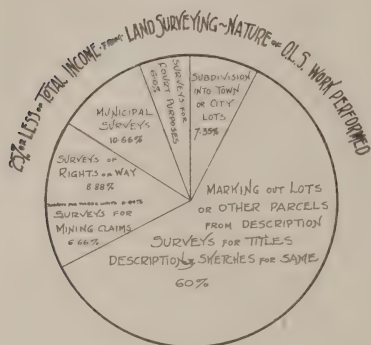 25% OR LESS OF TOTAL INCOME FROM LAND SURVEYING ~ NATURE OF O.L.S. WORK PERFORMED
SURVEYS FOR
COURT PURPOSES
SUBDIVISION
INTO TOWN
OR CITY
LOTS
MUNICIPAL
SURVEYS
10.66%
SURVEYS OF
RIGHTS OF WAY
8.88%
SURVEYS FOR
MINING CLAIMS
6.66%
MARKING OUT LOTS
OR OTHER PARCELS
FROM DESCRIPTION
SURVEYS FOR TITLES
DESCRIPTION & SKETCHES FOR SAME
60%